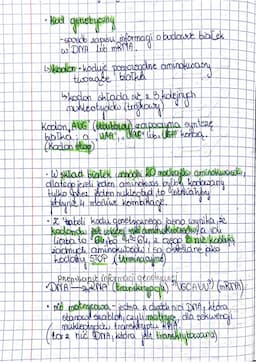 • Kod genetyczny
- sposób zapisu informacji o budowie białek
w DNA lub mRNA.
↳ Kodon - koduje poszczególne aminokwasy
tworzące białka
↳ kodon składa się z 3 kolejnych
nukleotydów (trójkowy)
Kodon AUG rozpoczyna syntezę
białka; a UAA, UAG lub UGA kończą.
(Kodon stop)
• W skład białek wchodzi 20 rodzajów aminokwasów,
dlatego jeżeli jeden aminokwas byłby kodowany
tylko przez jeden nukleotyd to istniałyby
jedynie 4 możliwe kombinacje.
• Z tabeli kodu genetycznego wynika, że
kodonów jest więcej niż aminokwasów
liczba to 64, z czego 3 nie kodują
żadnych aminokwasów i są określane jako
kodony STOP (terminacyjne)
Przepisanie informacji genetycznej
• DNA → mRNA (transkrypcja) (mRNA)
• nić matrycowa - jedna z dwóch nici DNA, która
stanowi matrycę dla sekwencji
nukleotydów transkryptu RNA.
(to z nić DNA, która jest transkrybowana)